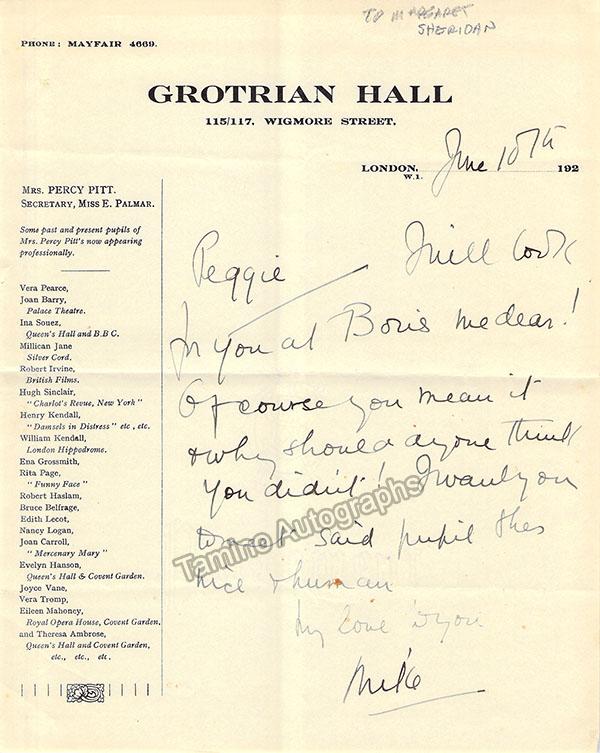 TO MARGARET
SHERIDAN
PHONE: MAYFAIR 4669.
GROTRIAN HALL
115/117, WIGMORE STREET,
LONDON, June 10th 192
W.1.
MRS. PERCY PITT.
SECRETARY, MISS E. PALMAR.
Some past and present pupils of
Mrs. Percy Pitt's now appearing
professionally.
Vera Pearce,
Joan Barry,
Palace Theatre.
Ina Souez,
Queen's Hall and B.B.C.
Millican Jane
Silver Cord.
Robert Irvine,
British Films.
Hugh Sinclair,
"Charlot's Revue, New York"
Henry Kendall,
"Damsels in Distress" etc, etc.
William Kendall,
London Hippodrome.
Ena Grossmith,
Rita Page,
"Funny Face"
Robert Haslam,
Bruce Belfrage,
Edith Lecot,
Nancy Logan,
Joan Carroll,
"Mercenary Mary"
Evelyn Hanson,
Queen's Hall & Covent Garden.
Joyce Vane,
Vera Tromp,
Eileen Mahoney,
Royal Opera House, Covent Garden.
and Theresa Ambrose,
Queen's Hall and Covent Garden,
etc., etc., etc.
Peggie I will look
for you at Boris me dear!
Of course you mean it
& why should anyone think
you didn't! I want you
to meet said pupil shes
nice & human
My love to you
Mike
Tamino Autographs